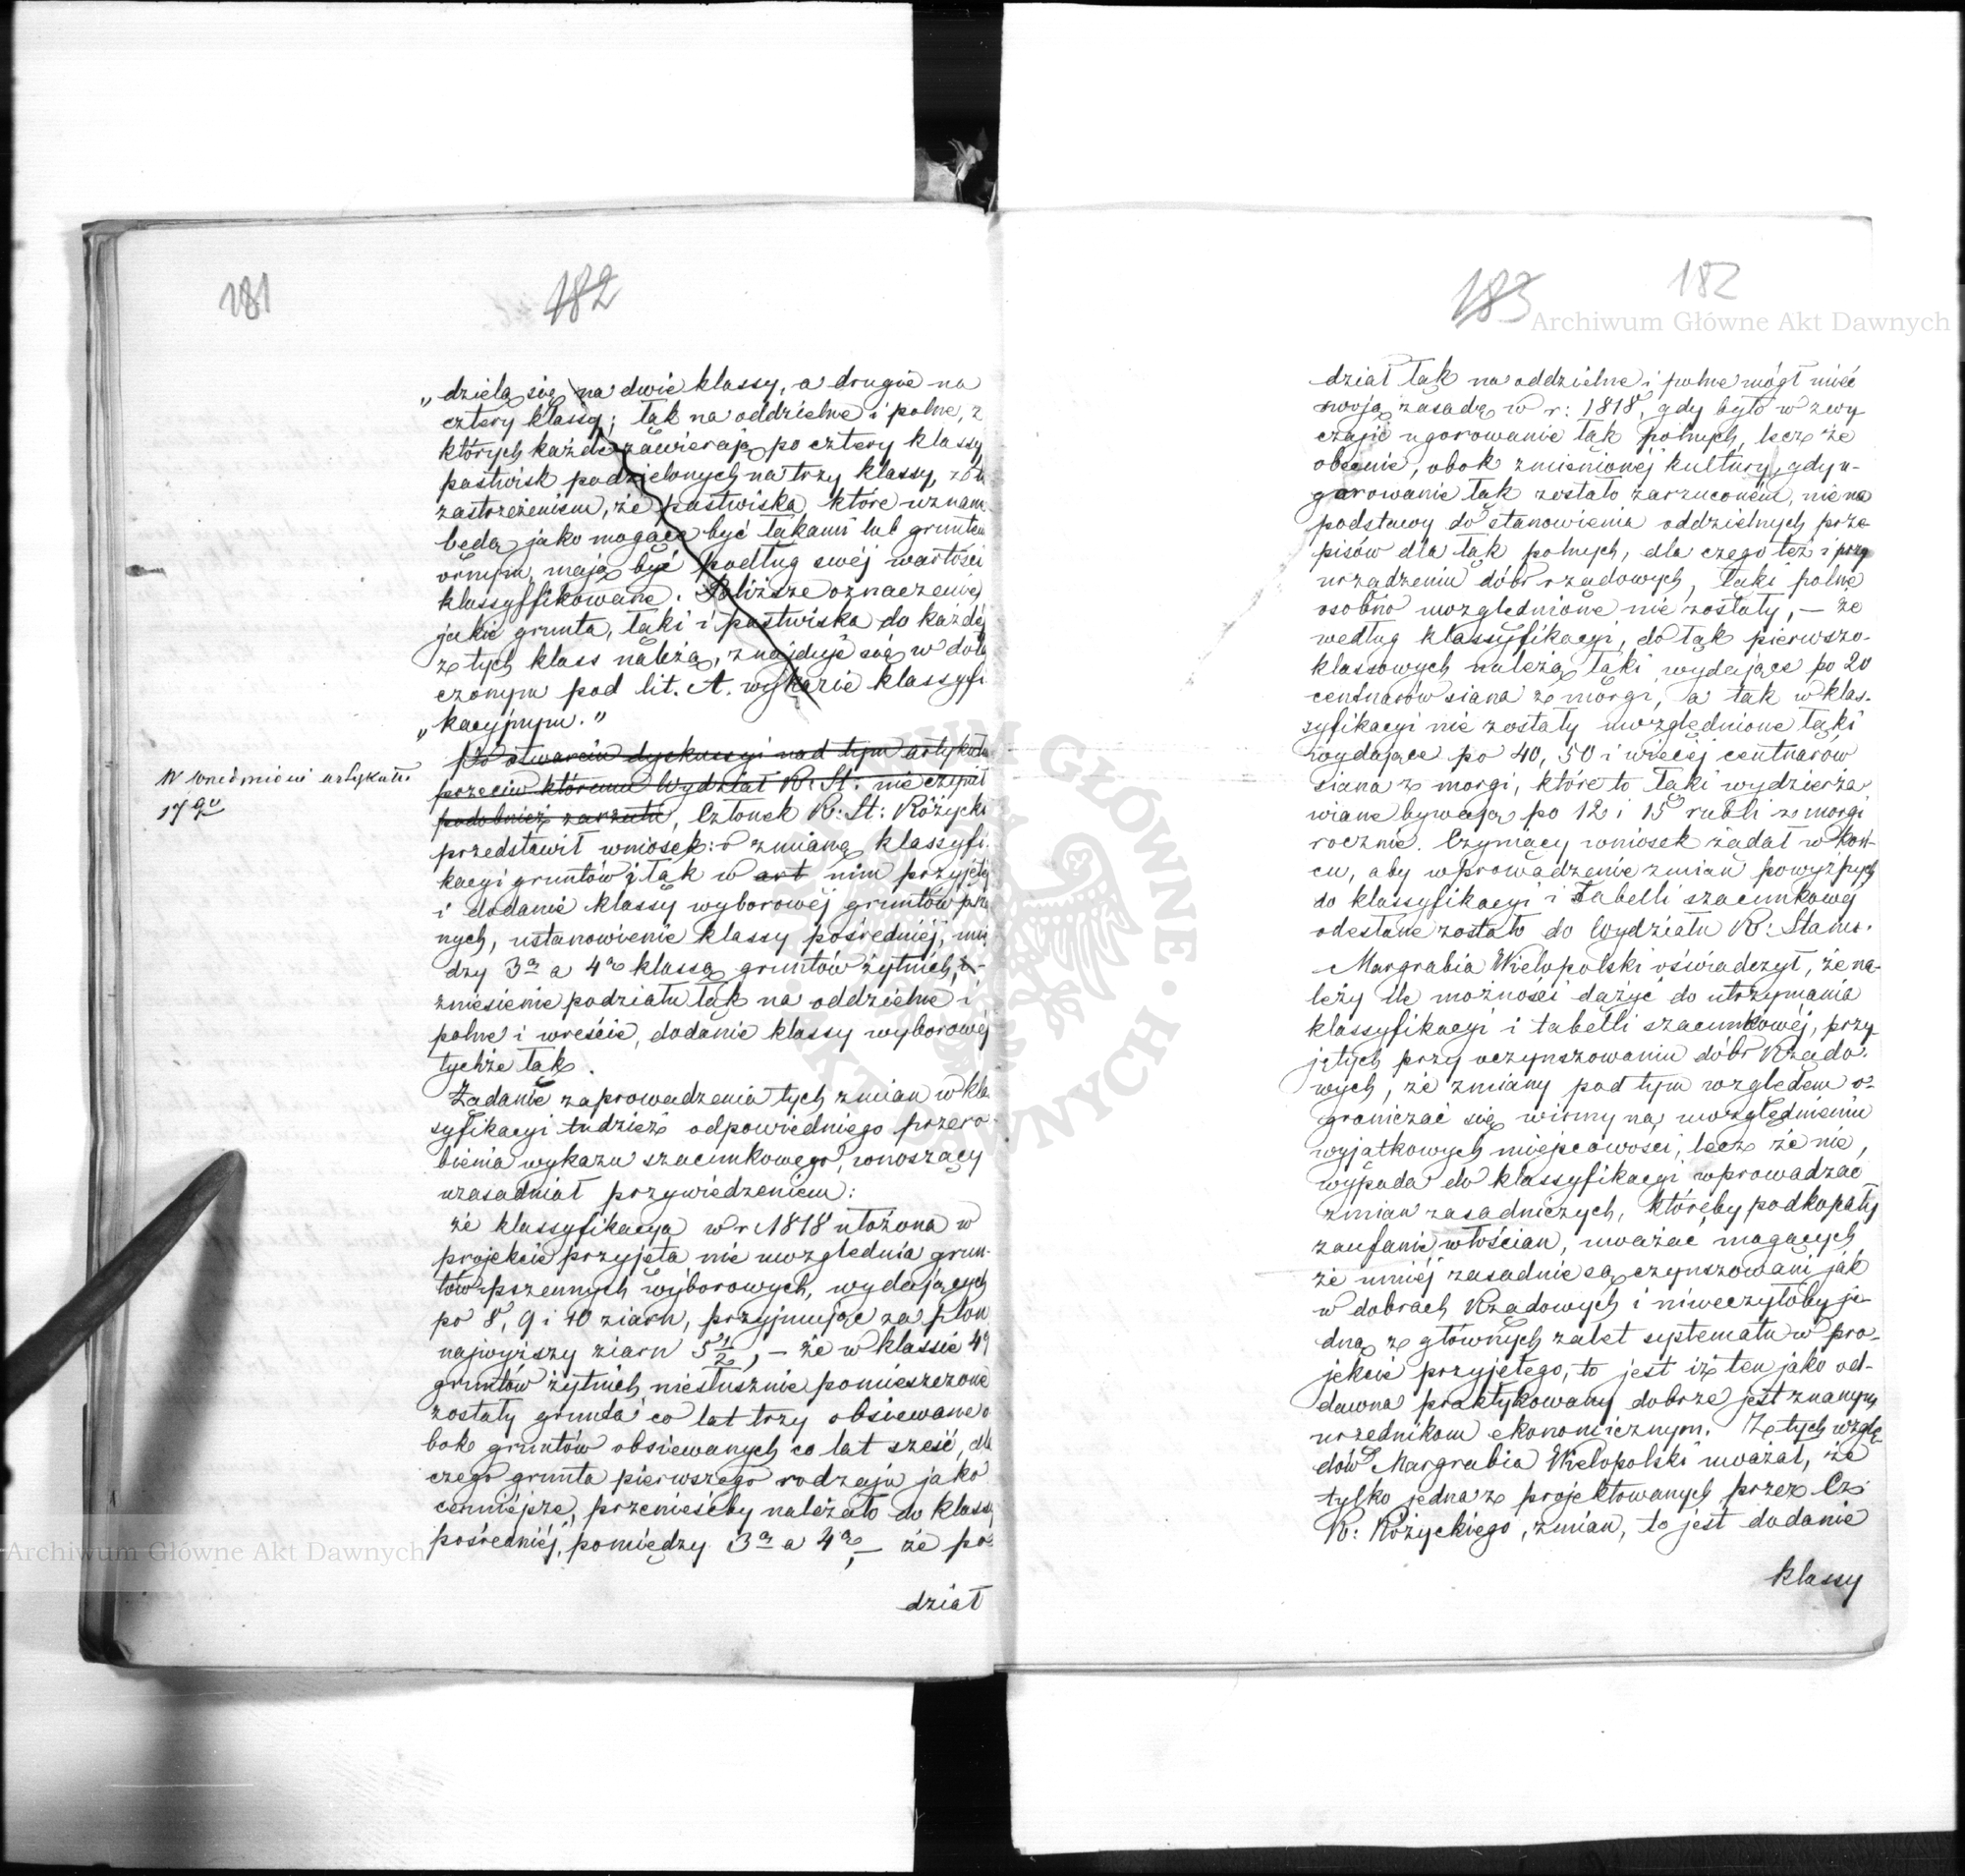 181
182
„dzielą się na dwie klassy, a drugie na
cztery klassy; łąk na oddzielne i polne, z
których każde zawierają po cztery klassy
pastwisk podzielonych na trzy klassy, z tem
zastrzeżeniem, że pastwiska, które uznane
będą jako mogące być łąkami lub gruntem
ornym, mają być podług swéj wartości
klassyffikowane. Bliższe oznaczenie,
jakie grunta, łąki i pastwiska do każdéj
z tych klass należą, znajduje się w dołą
czonym pod lit. A. wykazie klassyfi
„kacyjnym.”
Po otwarciu dyskussyi nad tym artykułem
przeciw któremu Wydział R: St: nie czynił
podobnież zarzutu, Członek R: St: Różycki
W wniesieniu artykułu
17go
przedstawił wniosek: o zmianę klassyfi
kacyi gruntów i łąk w art nim przyjętéj
i dodanie klassy wyborowéj gruntów psze
nych, ustanowienie klassy pośredniéj, mię
dzy 3ą a 4ą klassą gruntów żytnich, i
zniesienie podziału łąk na oddzielne i
polne i wreście, dodanie klassy wyborowéj
tychże łąk.
Żądanie zaprowadzenia tych zmian w kla
syfikacyi tudzież odpowiedniego przero
bienia wykazu szacunkowego, wnoszący
uzasadniał przywiedzeniem:
że klassyfikacya w r 1818 ułożona w
projekcie przyjęta, nie uwzględnia grun-
tów pszennych wyborowych, wydających
po 8, 9 i 10 ziarn, przyjmując za plon
najwyższy ziarn 5½, – że w klassie 4ej
gruntów żytnich niesłusznie pomieszczone
zostały grunta co lat trzy obsiewane o
bok gruntów obsiewanych co lat sześć, dla
czego grunta pierwszego rodzaju jako
cenniéjsze, przenieśćby należało do klassy
pośredniéj, pomiędzy 3ą a 4ą, – że po
dział
183
182
dział łąk na oddzielne i polne mógł mieć
swoją zasadę w r: 1818, gdy było w zwy
czaju ugorowanie łąk polnych, lecz że
obecnie, obok zmienionéj kultury, gdy u-
gorowanie łąk zostało zarzuconém, nie ma
podstawy do stanowienia oddzielnych prze
pisów dla łąk polnych, dla czego też i przy
urządzeniu dóbr rządowych, łąki polne
osobno uwzględnione nie zostały, – że
według klassyfikacyi, do łąk pierwszo-
klassowych należą łąki wydające po 20
centnarów siana z morgi, a tak w klas-
syfikacyi nie zostały uwzględnione łąki
wydające po 40, 50 i więcéj centnarów
siana z morgi, które to łąki wydzierża
wiane bywają po 12 i 15 rubli z morgi
rocznie. Czyniący wniosek żądał w koń-
cu, aby wprowadzenie zmian powyższych
do klassyfikacyi i Tabelli szacunkowéj
odesłane zostało do Wydziału R: Stanu.
Margrabia Wielopolski oświadczył, że na-
leży ile możności dążyć do utrzymania
klassyfikacyi i tabelli szacunkowéj, przy-
jętych przy oczynszowaniu dóbr Rządo-
wych, że zmiany pod tym względem o-
graniczać się winny na uwzględnieniu
wyjątkowych miejscowości, lecz że nie
wypada do klassyfikacyi wprowadzać
zmian zasadniczych, któreby podkopały
zaufanie włościan, uważać mogących
że mniéj zasadnie są czynszowani jak
w dobrach Rządowych i niweczyłoby je-
dną z głównych zalet systematu w pro-
jekcie przyjętego, to jest iż ten jako od-
dawna praktykowany dobrze jest znanym
urzędnikom ekonomicznym. Z tych wzglę-
dów Margrabia Wielopolski uważał, że
tylko jedna z projektowanych przez Cz:
R: Różyckiego, zmian, to jest dodanie
klassy
Archiwum Główne Akt Dawnych
Archiwum Główne Akt Dawnych